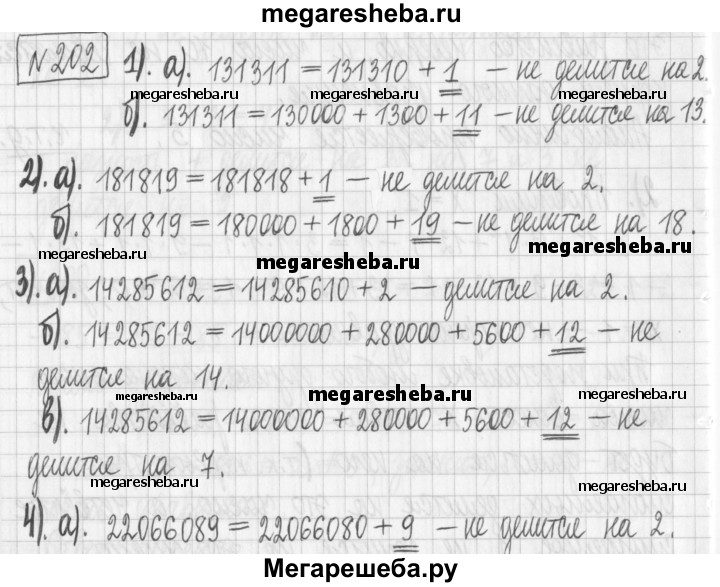 megaresheba.ru
№202 1). а). 131311 = 131310 + 1 — не делится на 2.
megaresheba.ru megaresheba.ru megaresheba.ru
б). 131311 = 130000 + 1300 + 11 — не делится на 13.
2). а). 181819 = 181818 + 1 — не делится на 2.
б). 181819 = 180000 + 1800 + 19 — не делится на 18.
megaresheba.ru megaresheba.ru megaresheba.ru
3). а). 14285612 = 14285610 + 2 — делится на 2.
б). 14285612 = 14000000 + 280000 + 5600 + 12 — не
делится на 14.
megaresheba.ru megaresheba.ru megaresheba.ru
в). 14285612 = 14000000 + 280000 + 5600 + 12 — не
делится на 7.
megaresheba.ru megaresheba.ru megaresheba.ru
4). а). 22066089 = 22066080 + 9 — не делится на 2.
Мегарешеба.ру